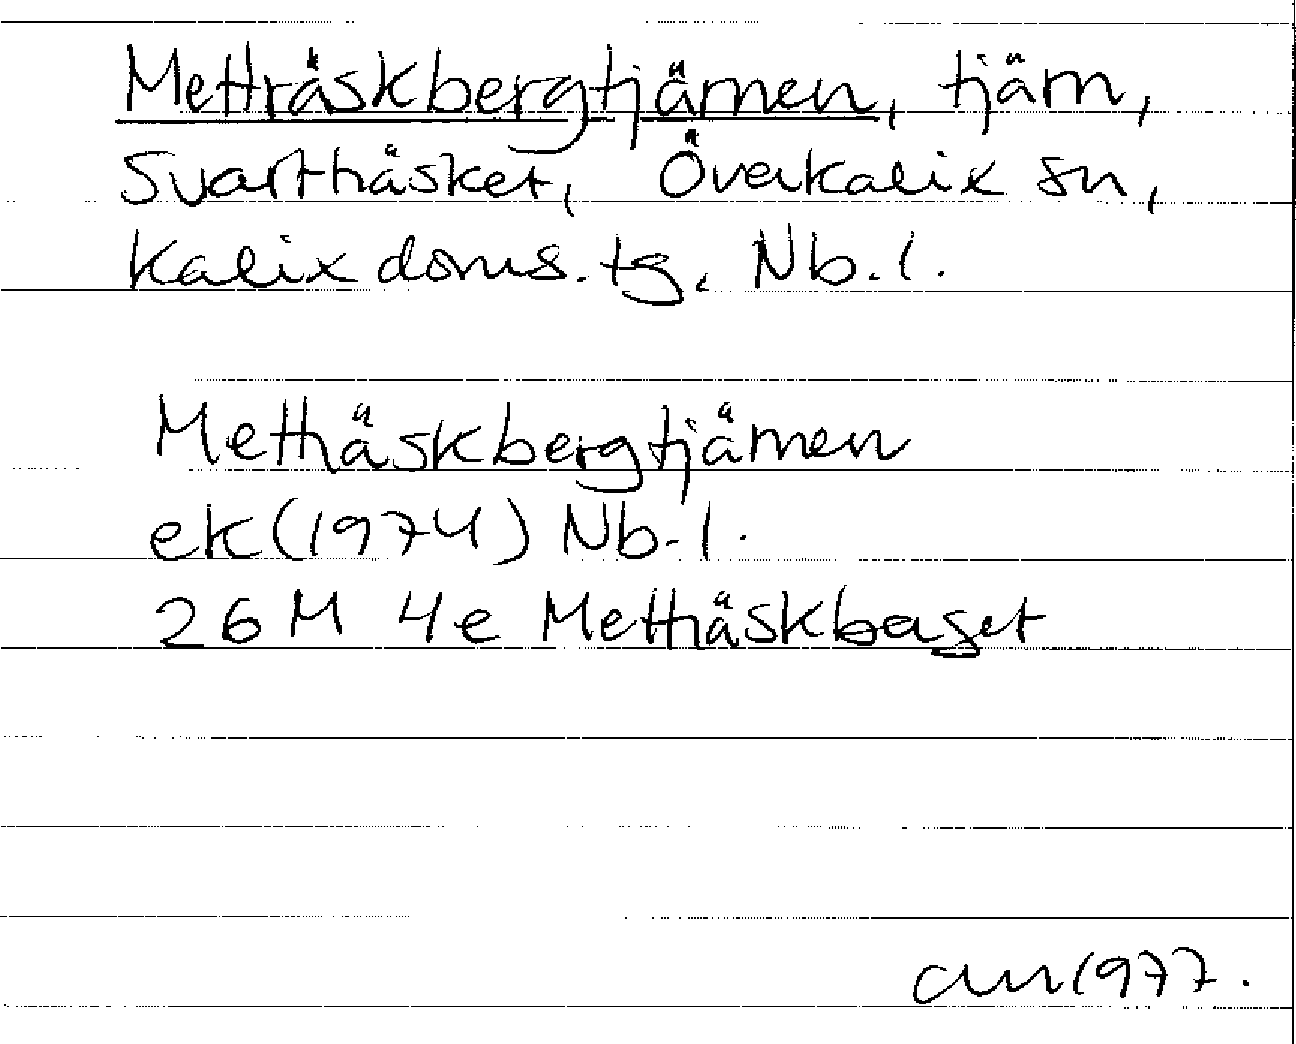 Metträskbergtjärnen, tjärn,
Svartträsket, Överkalix sn,
Kalix doms. tg. Nb. l.
Metträskbergtjärnen
ek (1974) Nb. l.
26 M 4e Metträskberget
1977.